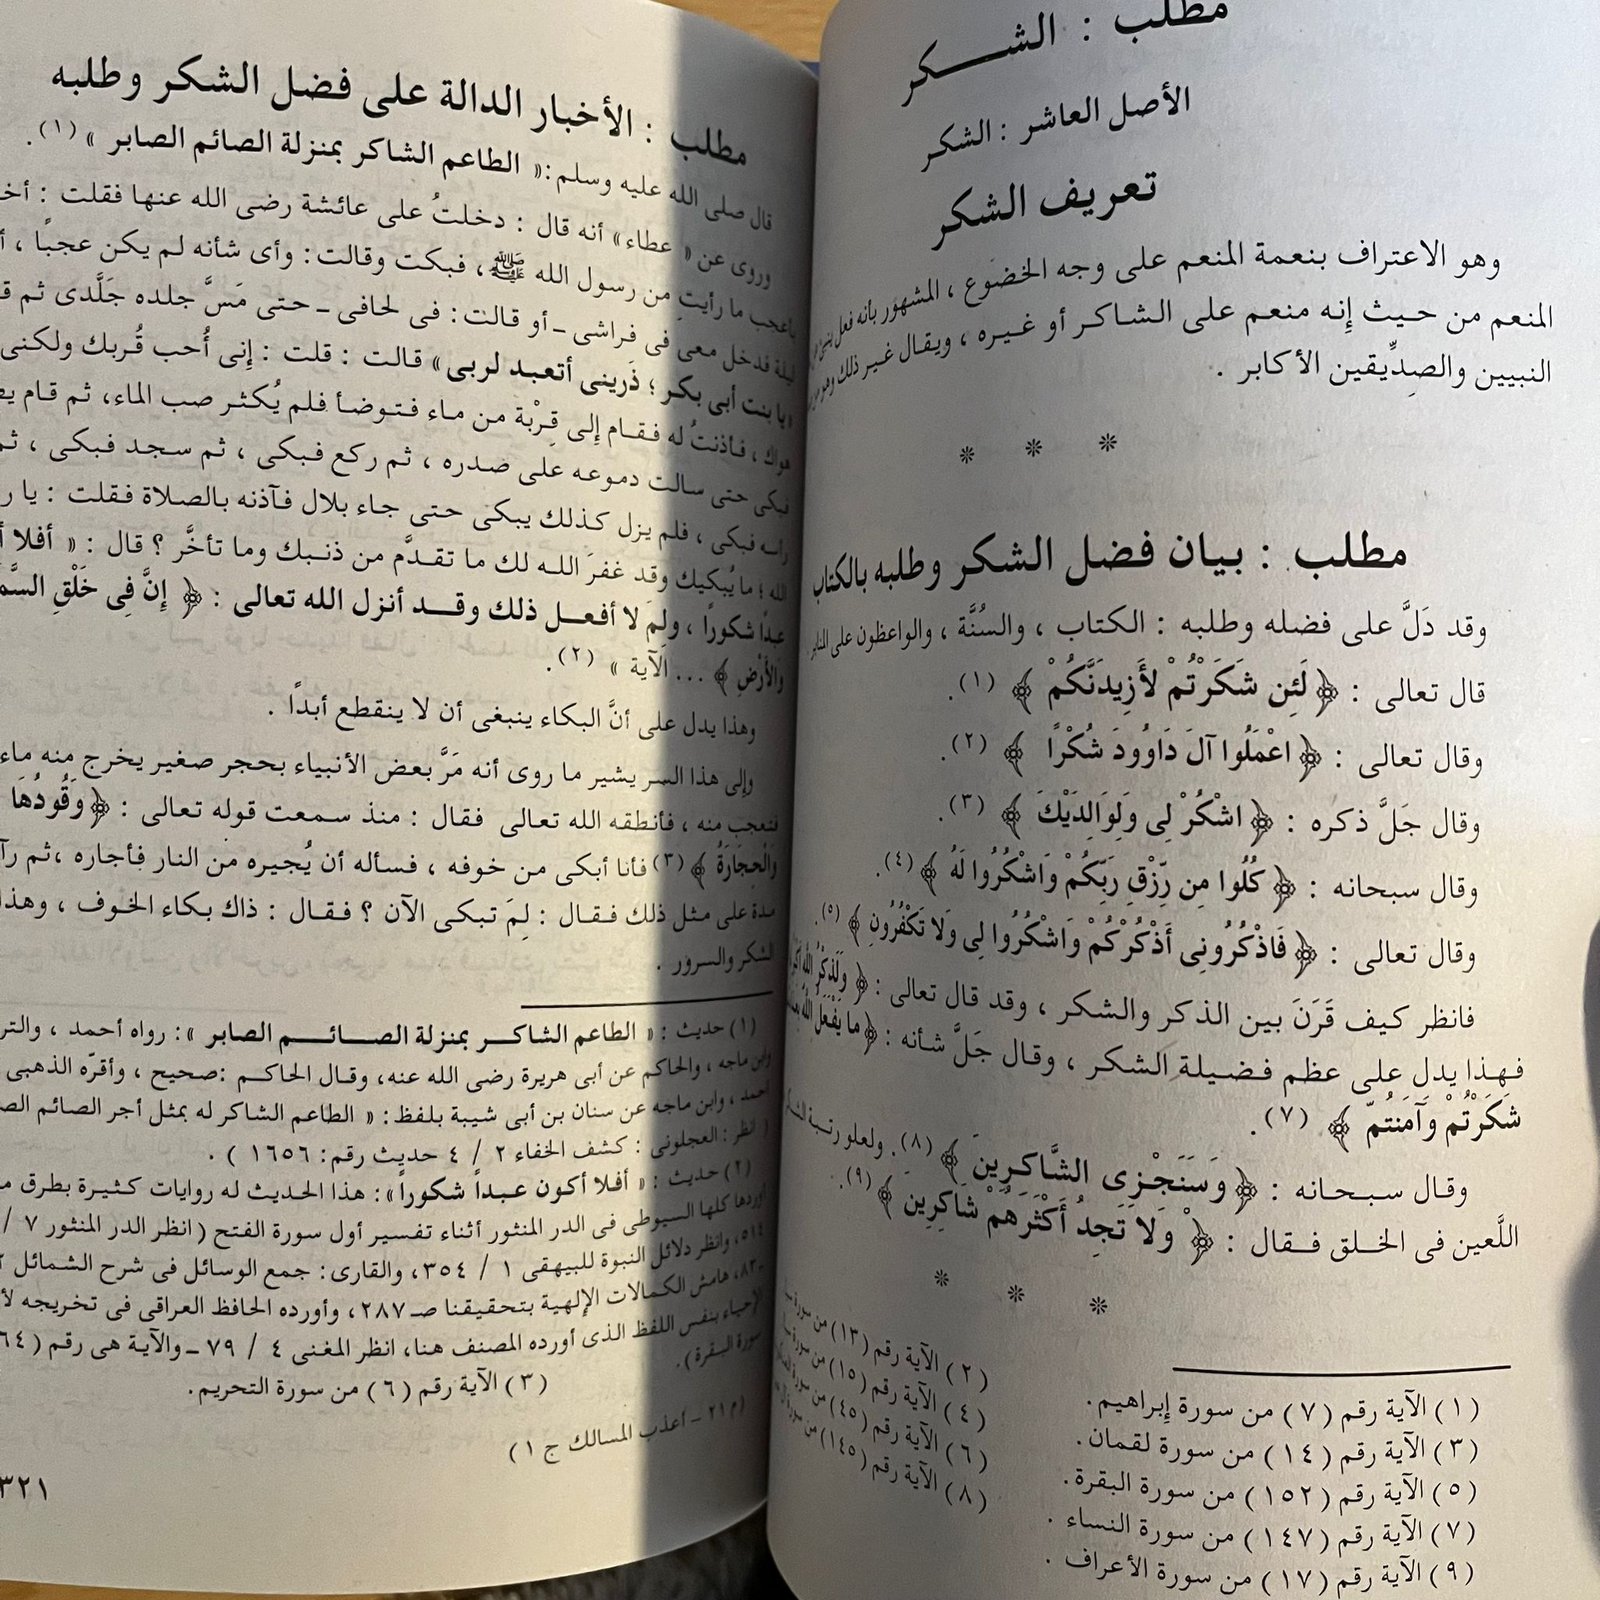 مطلب : الشكر
الأصل العاشر : الشكر
تعريف الشكر
وهو الاعتراف بنعمة المنعم على وجه الخضوع ، المشهور بأنه فعل ينبئ
المنعم من حيث إنه منعم على الشاكر أو غيره ، ويقال غير ذلك وهو من
النبيين والصدِّيقين الأكابر .
❊ ❊ ❊
مطلب : بيان فضل الشكر وطلبه بالكتاب
وقد دَلَّ على فضله وطلبه : الكتاب ، والسُنَّة ، والواعظون على المنابر
قال تعالى : ﴿ لَئِن شَكَرْتُمْ لأَزِيدَنَّكُمْ ﴾ (١) .
وقال تعالى : ﴿ اعْمَلُوا آلَ دَاوُودَ شُكْرًا ﴾ (٢) .
وقال جَلَّ ذكره : ﴿ اشْكُرْ لِى وَلِوَالِدَيْكَ ﴾ (٣) .
وقال سبحانه : ﴿ كُلُوا مِن رِّزْقِ رَبِّكُمْ وَاشْكُرُوا لَهُ ﴾ (٤) .
وقال تعالى : ﴿ فَاذْكُرُونِى أَذْكُرْكُمْ وَاشْكُرُوا لِى وَلا تَكْفُرُونِ ﴾ (٥) .
فانظر كيف قَرَنَ بين الذكر والشكر ، وقد قال تعالى : ﴿ وَلَذِكْرُ اللَّهِ أَكْبَرُ
فهذا يدل على عظم فضيلة الشكر ، وقال جَلَّ شأنه : ﴿ ما يَفْعَلُ اللَّهُ
شَكَرْتُمْ وَآمَنتُمْ ﴾ (٧) .
وقال سبحانه : ﴿ وَسَنَجْزِى الشَّاكِرِينَ ﴾ (٨) . ولعلو رتبة الشكر
اللَّعين فى الخلق فقال : ﴿ وَلا تَجِدُ أَكْثَرَهُمْ شَاكِرِينَ ﴾ (٩) .
❊ ❊ ❊
(١) الآية رقم (٧) من سورة إبراهيم .
(٢) الآية رقم (١٣) من سورة
(٣) الآية رقم (١٤) من سورة لقمان .
(٤) الآية رقم (١٥) من سورة
(٥) الآية رقم (١٥٢) من سورة البقرة .
(٦) الآية رقم (٤٥) من سورة
(٧) الآية رقم (١٤٧) من سورة النساء .
(٨) الآية رقم (١٤٥) من سورة
(٩) الآية رقم (١٧) من سورة الأعراف .
مطلب : الأخبار الدالة على فضل الشكر وطلبه
قال صلى الله عليه وسلم : « الطاعم الشاكر بمنزلة الصائم الصابر » (١) .
وروى عن « عطاء » أنه قال : دخلتُ على عائشة رضى الله عنها فقلت :
بأعجب ما رأيتِ من رسول الله ﷺ ، فبكت وقالت : وأى شأنه لم يكن عجبًا ،
ليلة فدخل معى فى فراشى ـ أو قالت : فى لحافى ـ حتى مَسَّ جلده جَلَّدى ثم
« يا بنت أبى بكر ؛ ذَرينى أتعبد لربى » قالت : قلت : إنى أُحب قُربك ولكنى
هواك ، فأذنتُ له فقام إلى قِرْبة من ماء فتوضأ فلم يُكثر صب الماء ، ثم قام
فبكى حتى سالت دموعه على صدره ، ثم ركع فبكى ، ثم سجد فبكى ،
رأسه فبكى ، فلم يزل كذلك يبكى حتى جاء بلال فآذنه بالصلاة فقلت : يا
الله ؛ ما يُبكيك وقد غفرَ الله لك ما تقدَّم من ذنبك وما تأخَّر ؟ قال : « أفلا
عبداً شكوراً ، ولِمَ لا أفعل ذلك وقد أنزل الله تعالى : ﴿ إِنَّ فِى خَلْقِ
وَالأَرْضِ ﴾ ... الآية » (٢) .
وهذا يدل على أنَّ البكاء ينبغى أن لا ينقطع أبدًا .
وإلى هذا السر يشير ما روى أنه مَرَّ بعض الأنبياء بحجر صغير يخرج منه ماء
فتعجب منه ، فأنطقه الله تعالى فقال : منذ سمعت قوله تعالى : ﴿ وَقُودُهَا
وَالْحِجَارَةُ ﴾ (٣) فأنا أبكى من خوفه ، فسأله أن يُجيره من النار فأجاره ، ثم
مدة على مثل ذلك فقال : لِمَ تبكى الآن ؟ فقال : ذاك بكاء الخوف ، وهذا
الشكر والسرور .
(١) حديث : « الطاعم الشاكر بمنزلة الصائم الصابر » : رواه أحمد ،
وابن ماجه ، والحاكم عن أبى هريرة رضى الله عنه ، وقال الحاكم : صحيح ، وأقرّه الذهبى
أحمد ، وابن ماجه عن سنان بن أبى شيبة بلفظ : « الطاعم الشاكر له بمثل أجر الصائم
( انظر : العجلونى : كشف الخفاء ٢ / ٤ حديث رقم : ١٦٥٦ ) .
(٢) حديث : « أفلا أكون عبداً شكوراً » : هذا الحديث له روايات كثيرة بطرق
أوردها كلها السيوطى فى الدر المنثور أثناء تفسير أول سورة الفتح ( انظر الدر المنثور ٧ /
٥١٤ ، وانظر دلائل النبوة للبيهقى ١ / ٣٥٤ ، والقارى : جمع الوسائل فى شرح الشمائل ٢
٨٢ـ ، هامش الكمالات الإلهية بتحقيقنا صـ ٢٨٧ ، وأورده الحافظ العراقى فى تخريجه
الإحياء بنفس اللفظ الذى أورده المصنف هنا ، انظر المغنى ٤ / ٧٩ ـ والآية هى رقم
سورة البقرة ) .
(٣) الآية رقم (٦) من سورة التحريم .
(م ٢١ ـ أعذب المسالك ج ١)
٣٢١